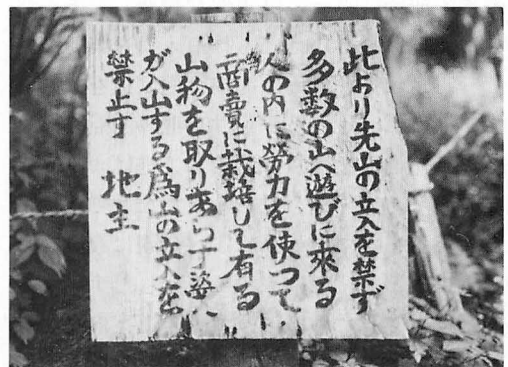 此より先山の立入を禁ず
多数の山へ遊びに來る
人の内に勞力を使つて
商賣に栽培して有る
山物を取りあらす
が入山する爲山の立入を
禁止す 地主